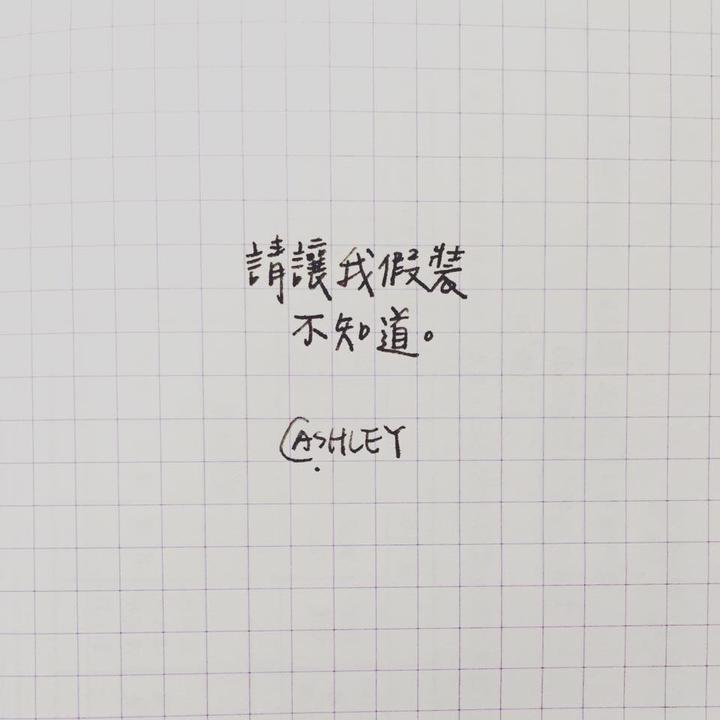 請讓我假裝
不知道。
@ASHLEY